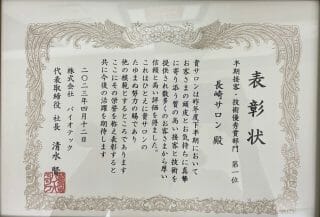 表彰状
半期接客・技術優秀賞部門 第一位
長崎サロン 殿
貴サロンは昨年度下半期において
お客さまの頭皮とお気持ちに真摯
に寄り添う質の高い接客と技術を
提供され数多くのお客さまから厚い
信頼と高い評価を得ました。
これはひとえに貴サロンの
たゆまぬ努力の賜であり
他の模範とするところであります
ここにその栄誉を称え表彰すると
共に今後の活躍を期待します
二〇二三年四月十二日
株式会社 バイオテック
代表取締役・社長 清水